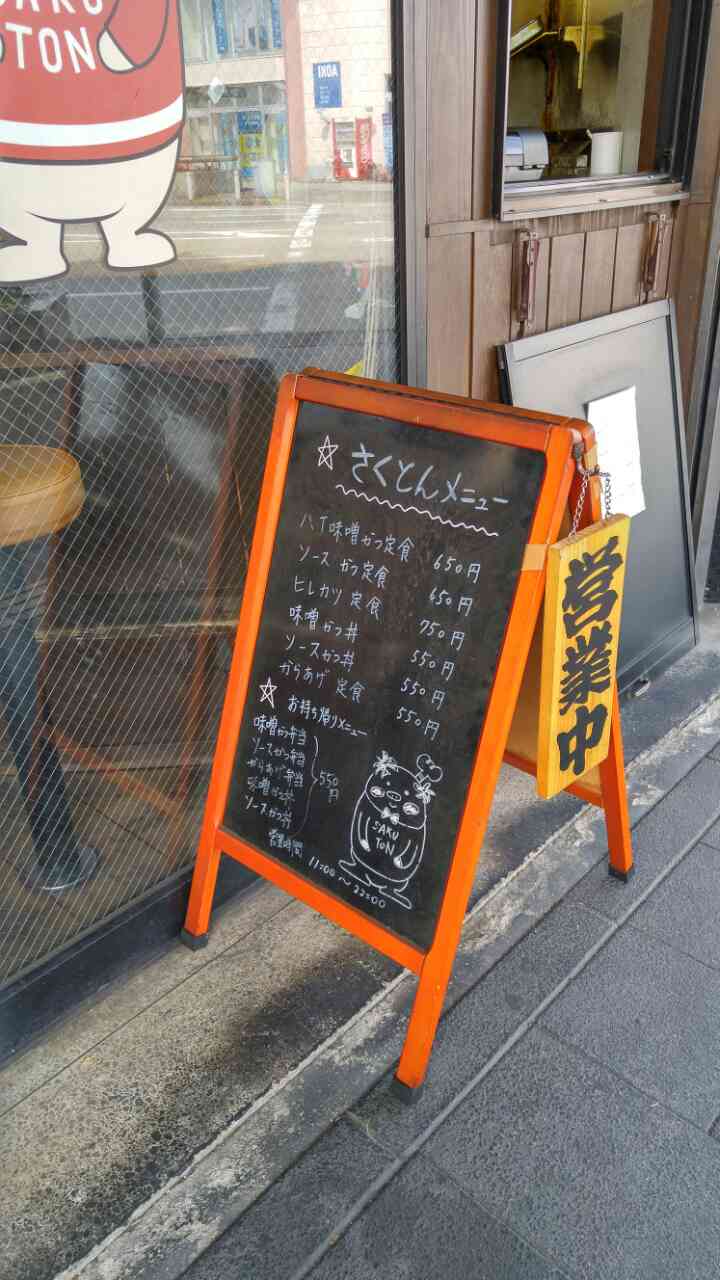 SAKU
TON
INOA
☆ さくとんメニュー
八丁味噌かつ定食 650円
ソースかつ定食 650円
ヒレカツ定食 750円
味噌かつ丼 550円
ソースかつ丼 550円
からあげ定食 550円
☆ お持ち帰りメニュー
味噌かつ弁当
ソースかつ弁当
からあげ弁当
味噌かつ丼
ソースかつ丼
550円
営業時間
11:00～22:00
SAKU
TON
営業中